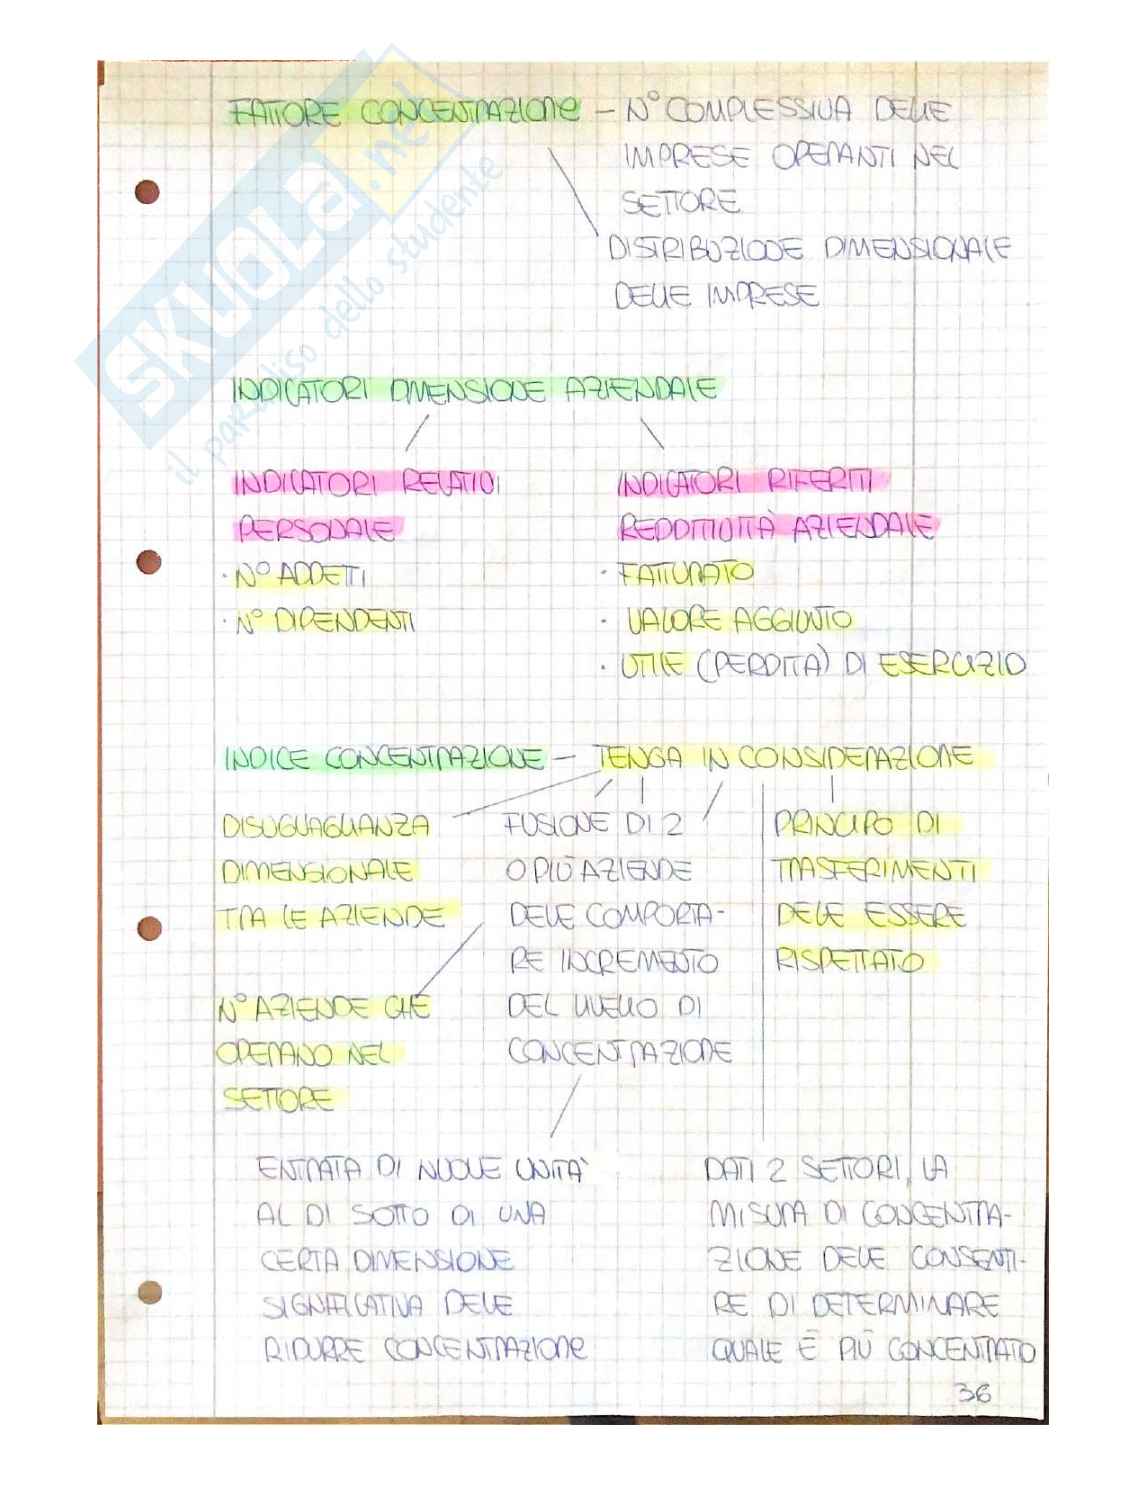 FATTORE CONCENTRAZIONE – N° COMPLESSIVA DELLE
IMPRESE OPERANTI NEL
SETTORE
DISTRIBUZIONE DIMENSIONALE
DELLE IMPRESE
INDICATORI DIMENSIONE AZIENDALE
INDICATORI RELATIVI
PERSONALE
· N° ADDETTI
· N° DIPENDENTI
INDICATORI RIFERITI
REDDITIVITÀ AZIENDALE
· FATTURATO
· VALORE AGGIUNTO
· UTILE (PERDITA) DI ESERCIZIO
INDICE CONCENTRAZIONE – TENGA IN CONSIDERAZIONE
DISUGUAGLIANZA
DIMENSIONALE
TRA LE AZIENDE
N° AZIENDE CHE
OPERANO NEL
SETTORE
FUSIONE DI 2
O PIÙ AZIENDE
DEVE COMPORTA-
RE INCREMENTO
DEL LIVELLO DI
CONCENTRAZIONE
PRINCIPO DI
TRASFERIMENTI
DEVE ESSERE
RISPETTATO
ENTRATA DI NUOVE UNITA'
AL DI SOTTO DI UNA
CERTA DIMENSIONE
SIGNIFICATIVA DEVE
RIDURRE CONCENTRAZIONE
DATI 2 SETTORI, LA
MISURA DI CONCENTRA-
ZIONE DEVE CONSENTI-
RE DI DETERMINARE
QUALE È PIÙ CONCENTRATO
36
SKUOLA.net
il paradiso dello studente